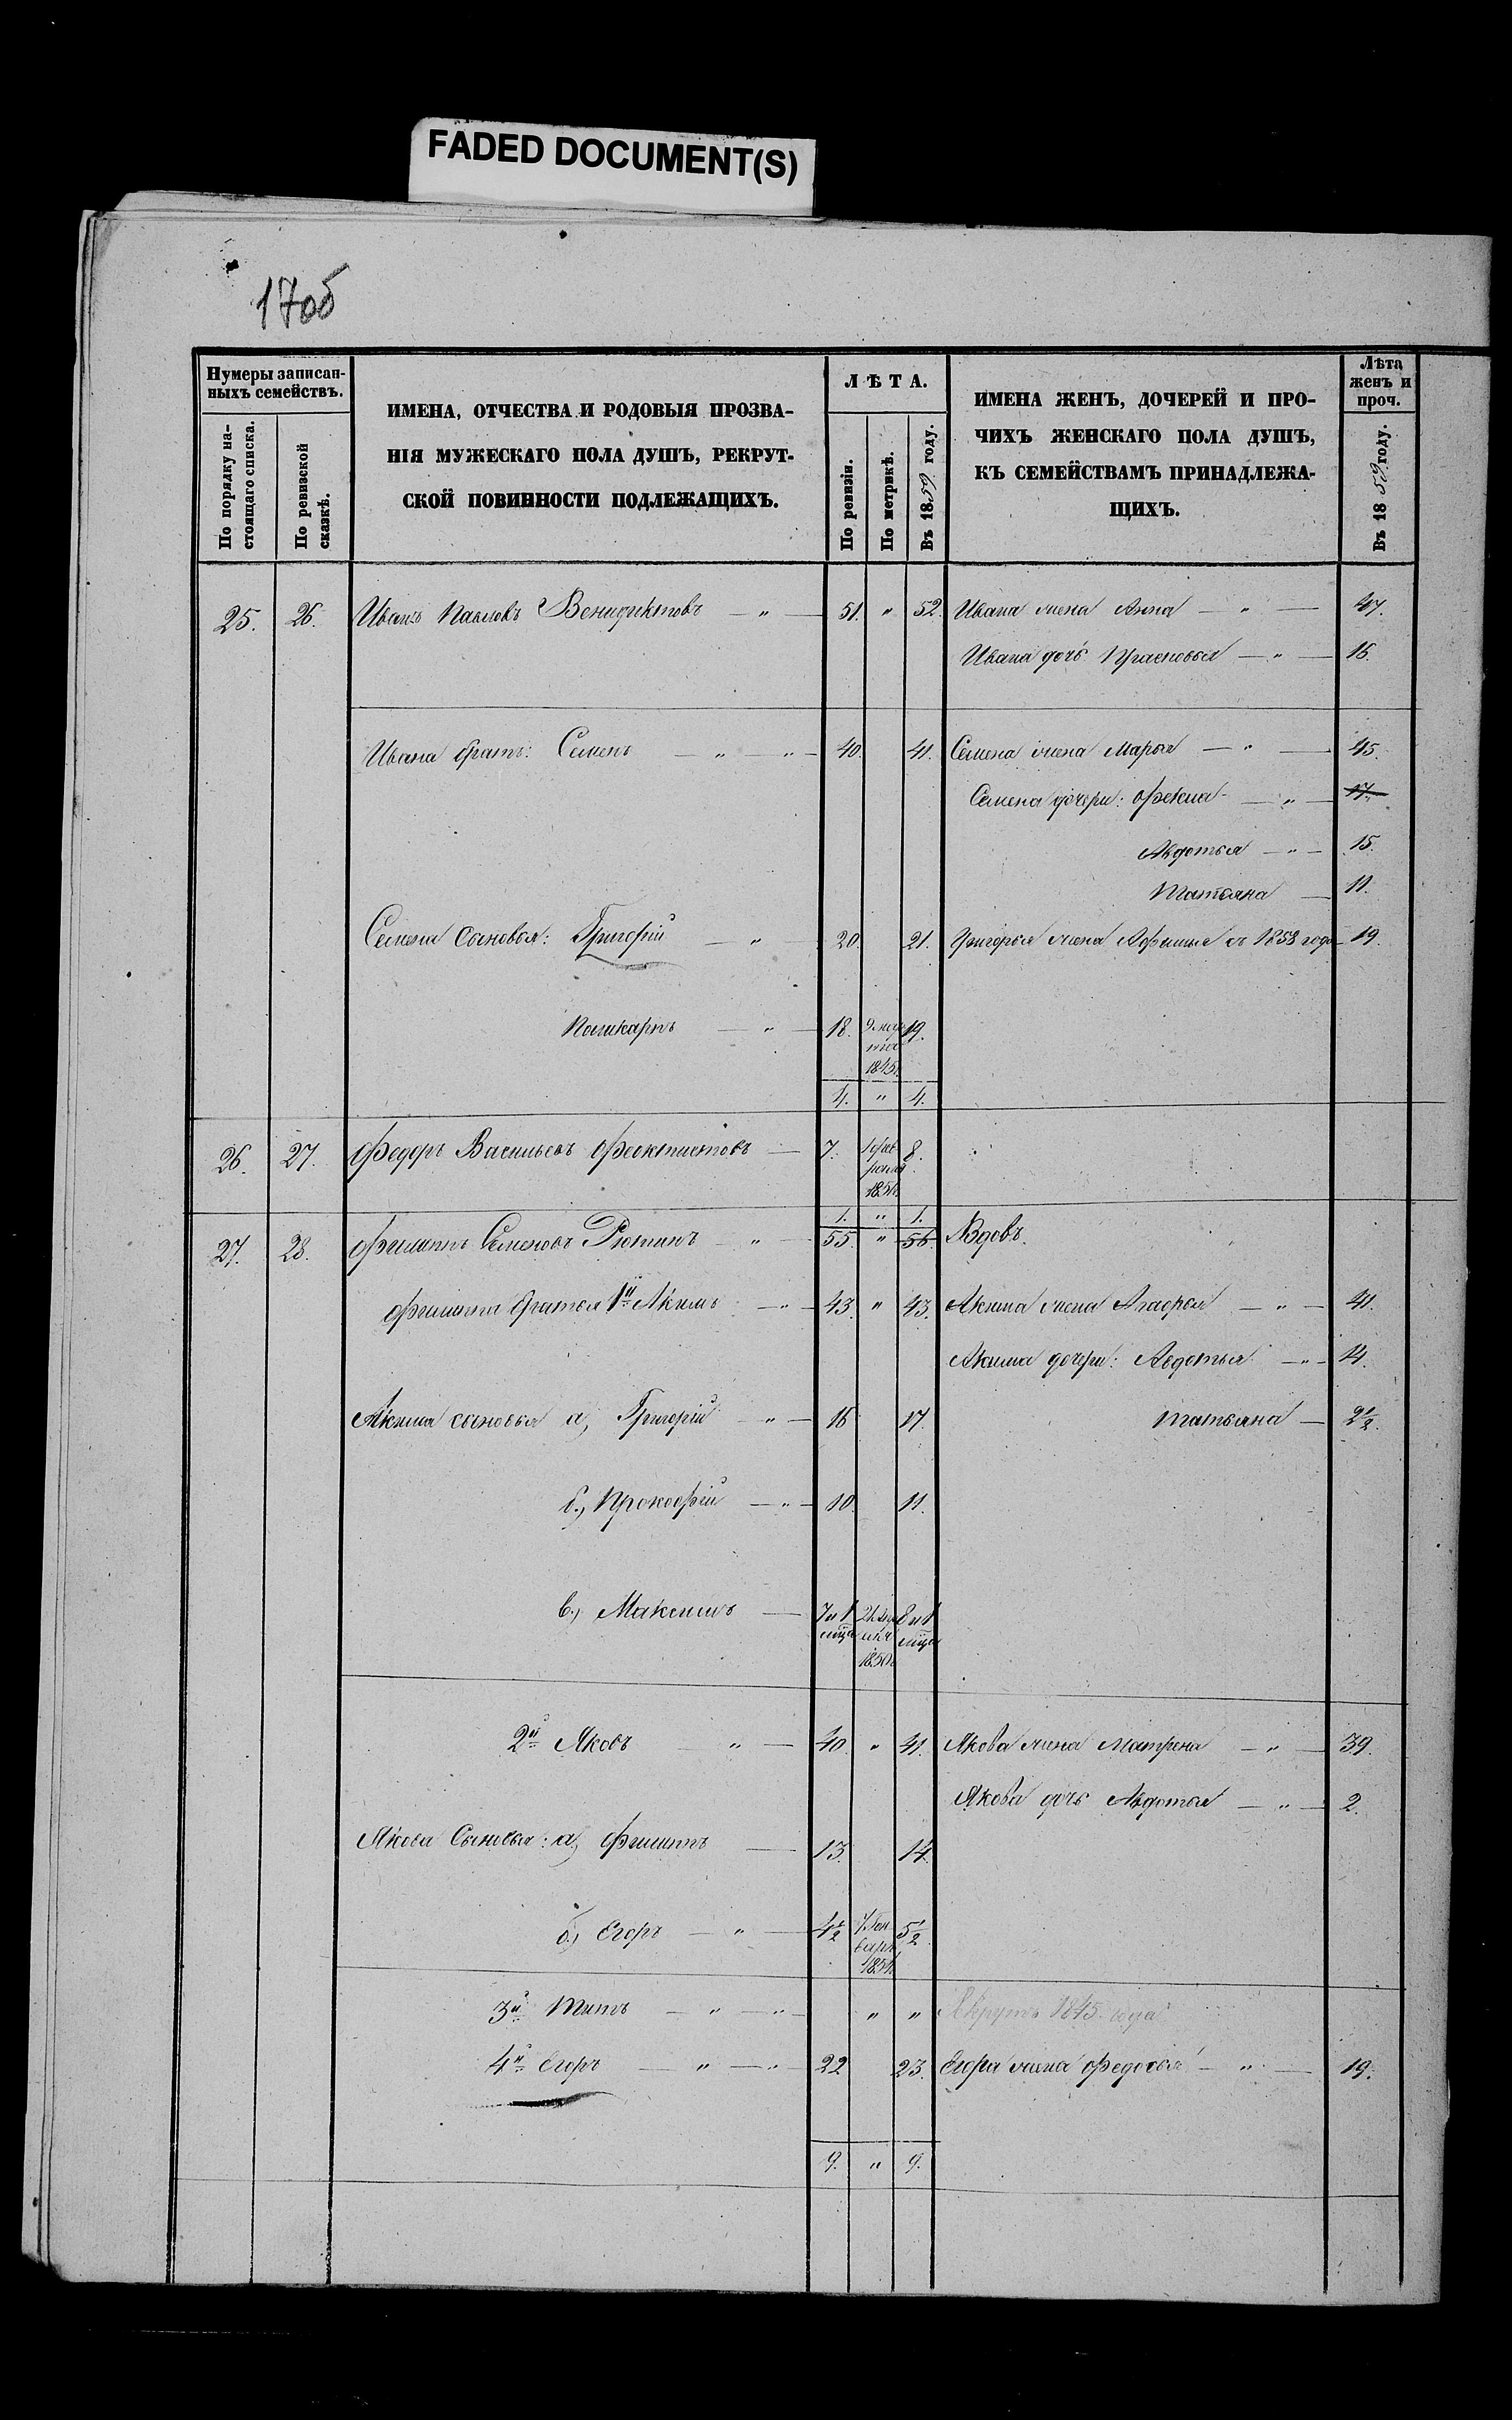 FADED DOCUMENT(S)
17об
Нумеры записан-
ныхъ семействъ.
По порядку на-
стоящаго списка.
По ревизской
сказкѣ.
ИМЕНА, ОТЧЕСТВА И РОДОВЫЯ ПРОЗВА-
НІЯ МУЖЕСКАГО ПОЛА ДУШЪ, РЕКРУТ-
СКОЙ ПОВИННОСТИ ПОДЛЕЖАЩИХЪ.
ЛѢТА.
По ревизіи.
По метрикѣ.
Въ 1859 году.
ИМЕНА ЖЕНЪ, ДОЧЕРЕЙ И ПРО-
ЧИХЪ ЖЕНСКАГО ПОЛА ДУШЪ,
КЪ СЕМЕЙСТВАМЪ ПРИНАДЛЕЖА-
ЩИХЪ.
Лѣта
женъ и
проч.
Въ 1859 году.
25. 26. Иванъ Павловъ Венидиктовъ — " — 51. " 52. Ивана жена Анна — " — 47.
Ивана дочь Прасковья — " — 16.
Ивана братъ: Семенъ — " — " — 40. 41. Семена жена Марья — " — 45.
Семена дочери: Фекла — " — 17.
Авдотья — " — 15.
Татьяна — 11.
Семена сыновья: Григорій — " — 20. 21. Григорья жена Афимья съ 1858 года 19.
18. 19.
1845
4. " 4.
26. 27. Федоръ Васильевъ Феоктистовъ — 7. 1 фев
раля 8.
1851
1. " 1.
27. 28. Филиппъ Семеновъ Рютинъ — " — 55. " 56. Вдовъ.
Филиппа братья 1й Акимъ — " — 43. " 43. Акима жена Агафья — " — 41.
Акима дочери: Авдотья — " — 14.
Акима сыновья а, Григорій — " — 16 17. Татьяна — 2½.
б., Прокофій — " — 10. 11.
в., Максимъ — 7 и 1 8 и 1
мѣся мѣся
1850
2й Яковъ — " — 40. " 41. Якова жена Матрена — " — 39.
Якова дочь Авдотья — " — 2.
Якова Сыновья: а, Филиппъ — 13. 14.
б., Егоръ — " — 4½ Ген
варя 5½
1854
3й Титъ — " — " — " " Рекрутъ 1845 года
4й Егоръ — " — " — 22 23. Егора жена Федосья — " — 19.
9. " 9.